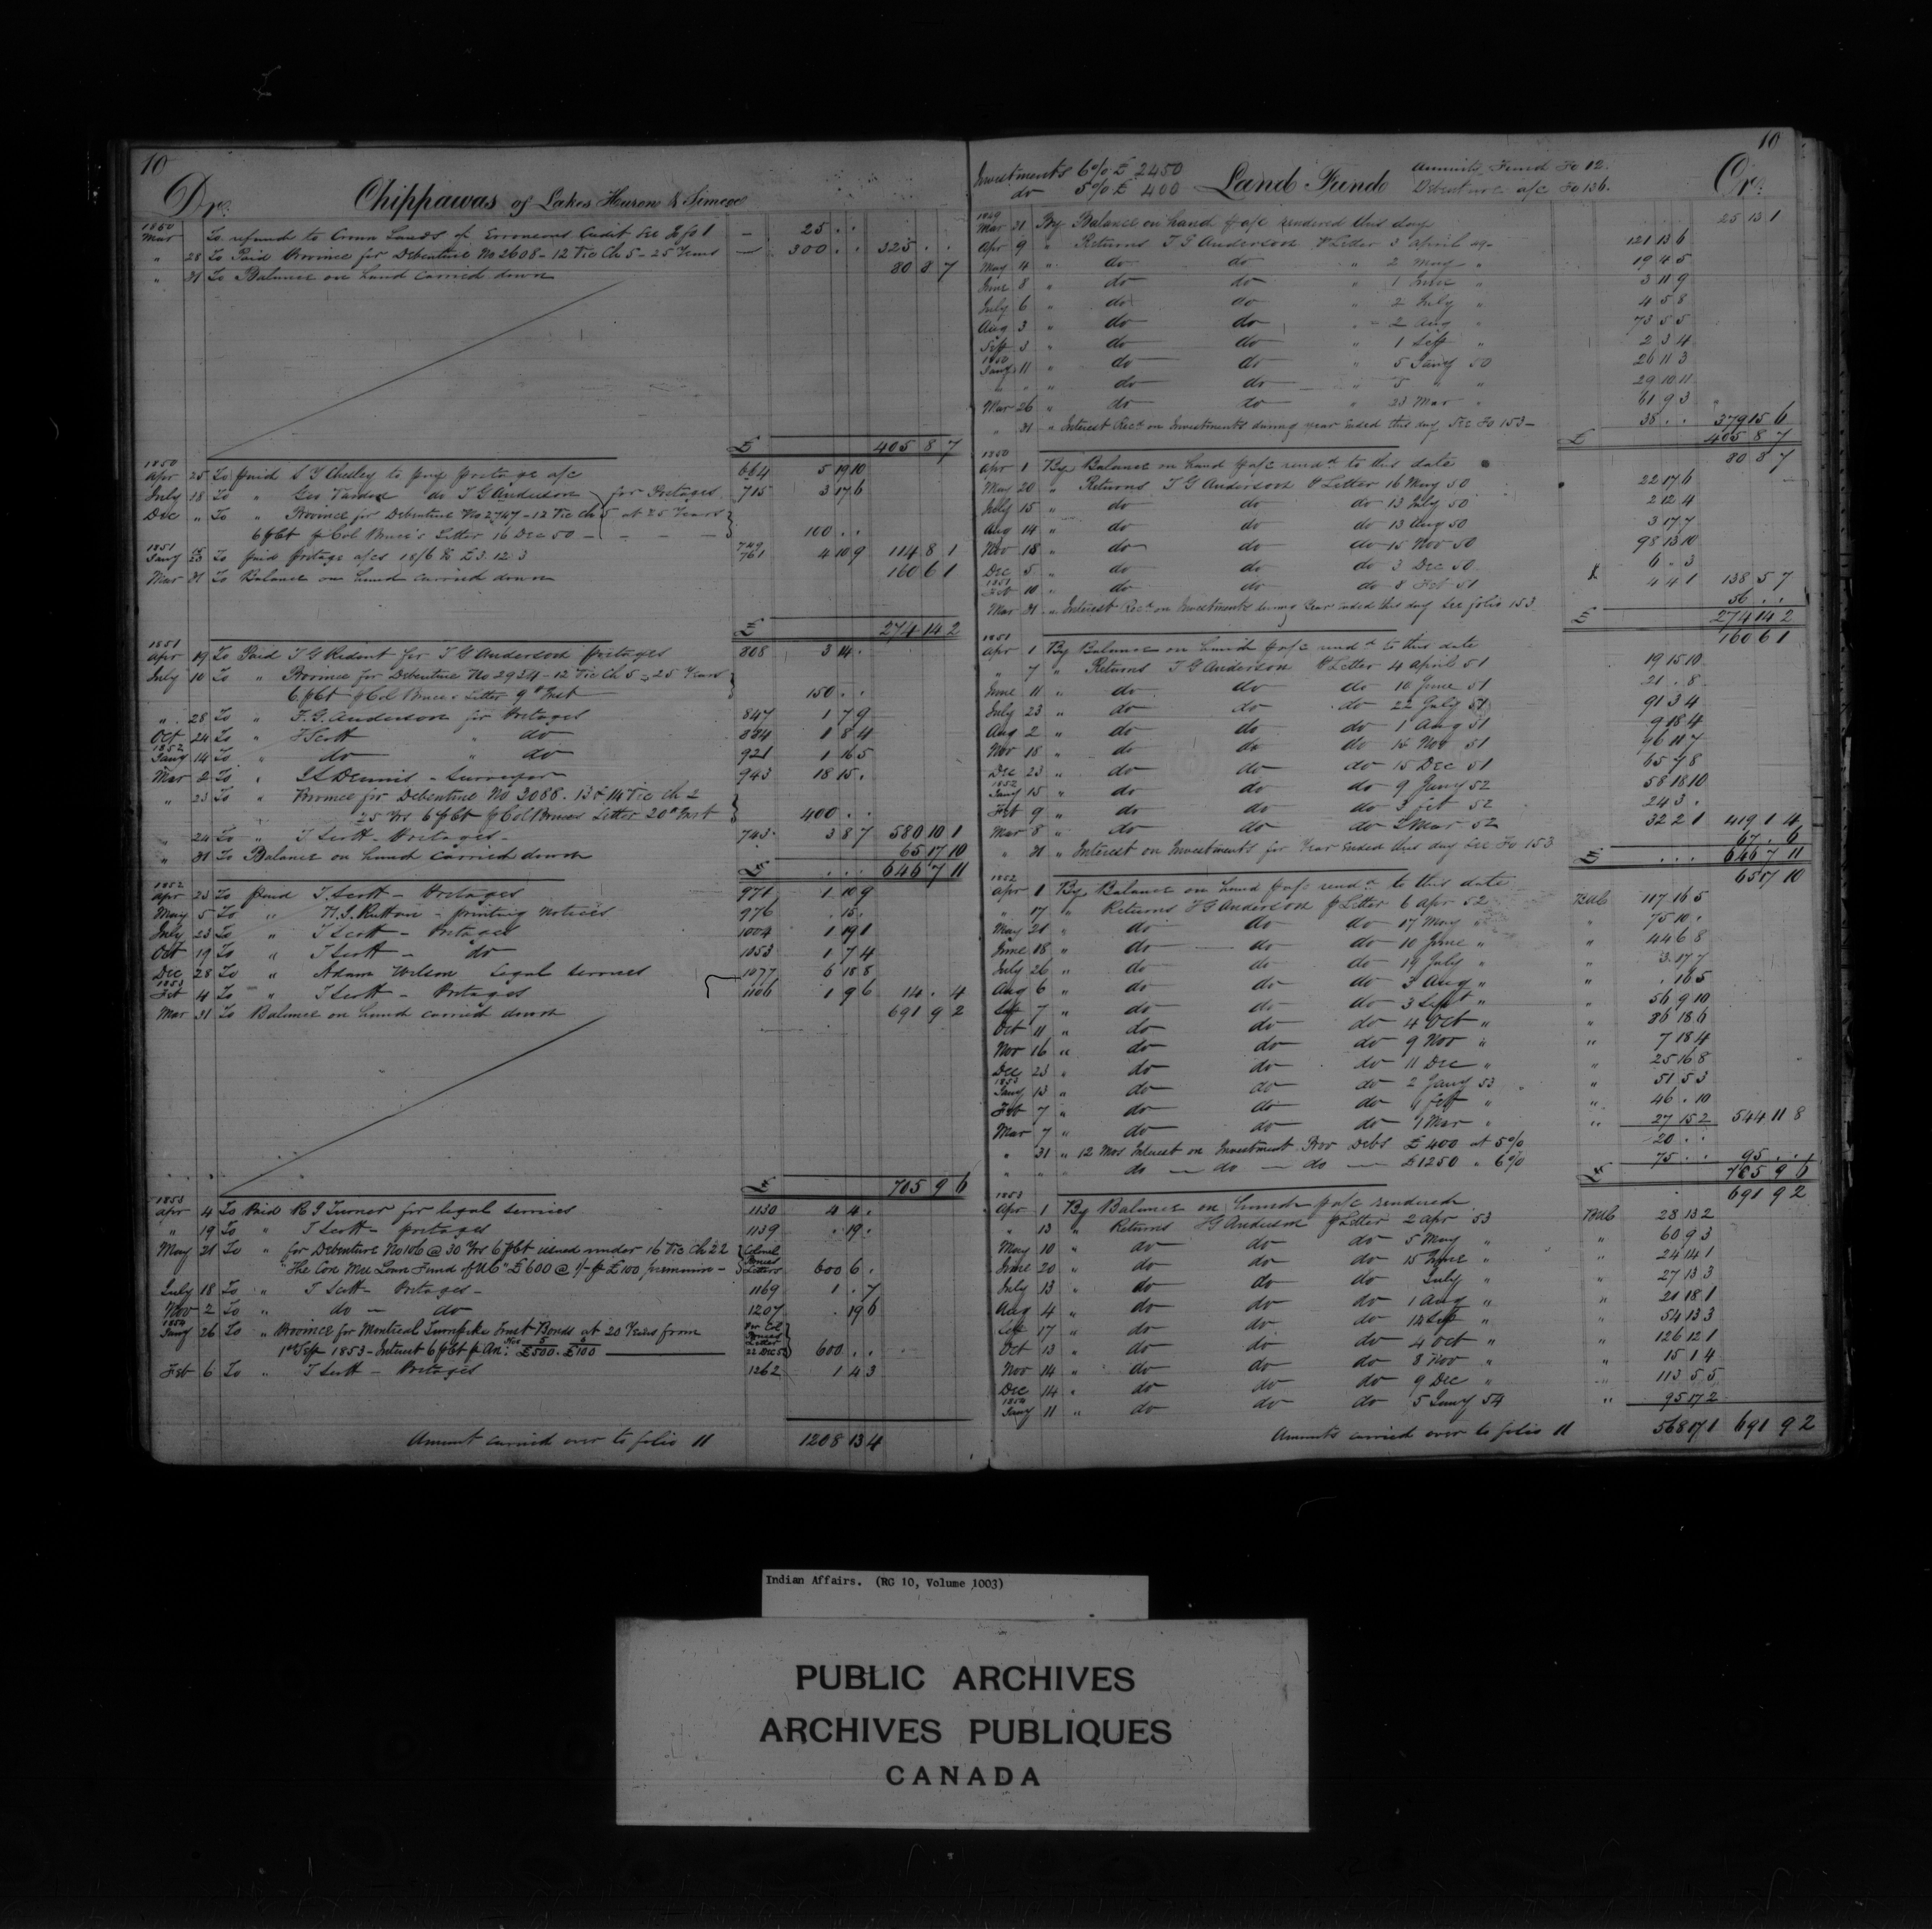 10
Dr. Chippawas of Lakes Huron & Simcoe
1850
Mar To refund to Crown Lands of Erroneous Credit See fo 1 — 25 . .
" 28 To Paid Province for Debenture No 2608 - 12 Vic Ch 5 - 25 Years — 300 . . 325 . .
" 31 To Balance on hand carried down 80 8 7
£ 405 8 7
1850
Apr 25 To paid S Y Chesley to pay postage a/c 664 5 19 10
July 18 To " Geo Vardon do T G Anderson for Postages 715 3 17 6
Dec " To " Province for Debenture No 2747 - 12 Vic Ch 5 at 25 Years
6 p Ct p Col Bruce's Letter 16 Dec 50 — 100 . .
1851
Jany 23 To paid postage a/cs 18/6 & £3.12.3 749 761 4 10 9 114 8 1
Mar 31 To Balance on hand carried down 160 6 1
£ 274 14 2
1851
Apr 19 To Paid T G Ridout for T G Anderson postages 808 3 14 .
July 10 To " Province for Debenture No 2924 - 12 Vic Ch 5 - 25 Years
6 p Ct p Col Bruce's Letter 9th Inst 150 . .
" 28 To " T. G. Anderson for Postages 847 1 7 9
Oct 24 To " T Scott " do 884 1 8 4
1852
Jany 14 To " do " do 921 1 16 5
Mar 2 To " J S Dennis - Surveyor 943 18 15 .
" 23 To " Province for Debenture No 3088. 13 & 14 Vic Ch 2
25 Yrs 6 p Ct p Col Bruces Letter 20th Inst 400 . .
" 24 To " T Scott - Postages - 743 3 8 7 580 10 1
" 31 To Balance on hand carried down 65 17 10
£ . . . 646 7 11
1852
Apr 23 To paid T Scott - Postages 971 1 10 9
May 5 To " H. J. Ruttan - printing notices 976 . 15 .
July 23 To " T Scott - Postages 1004 1 19 1
Oct 19 To " T Scott - do 1053 1 7 4
Dec 28 To " Adam Wilson Legal Services 1077 6 18 8
1853
Feb 4 To " T Scott - Postages 1106 1 9 6 14 . 4
Mar 31 To Balance on hand carried down 691 9 2
£ 705 9 6
1853
Apr 4 To Paid R J Turner for legal services 1130 4 4 .
" 19 To " T Scott - postages 1139 . 19 .
May 21 To " for Debenture No 106 @ 30 Yrs 6 p Ct issued under 16 Vic Ch 22 Colonel Bruces Letters
"The Con Mu Loan Fund of UC" £600 @ 1/- p £100 premium - 600 6 .
July 18 To " T Scott - Postages - 1169 1 . 7
Nov 2 To " do - do 1207 . 19 6
1854
Jany 26 To " Province for Montreal Turnpike Trust Bonds at 20 Years from Per Col Bruces Letter 22 Dec 53
1st Sep 1853 - Interest 6 p Ct p An: £500. £100 600 . .
Feb 6 To " T Scott - Postages 1262 1 4 3
Amount carried over to folio 11 1208 13 4
10
Investments 6% £ 2450 Land Fund Annuity Fund Fo 12. Cr.
do 5% £ 400 Debenture a/c Fo 136.
1849
Mar 31 By Balance on hand p a/c rendered this day 25 13 1
Apr 9 " Returns T G Anderson P Letter 3 April 49 - 121 13 6
May 4 " do do " 2 May " 19 4 5
June 8 " do do " 1 June " 3 11 9
July 6 " do do " 2 July " 4 5 8
Aug 3 " do do " 2 Aug " 73 5 5
Sep 3 " do do " 1 Sep " 2 3 4
1850
Jany 11 " do do " 5 Jany 50 26 11 3
" " " do do " 5 " " 29 10 11
Mar 26 " do do " 23 Mar " 61 9 3
" 31 " Interest Recd on Investments during year ended this day See Fo 153 - 38 . . 379 15 6
£ 405 8 7
1850
Apr 1 By Balance on hand p a/c rend^d to this date 80 8 7
May 20 " Returns T G Anderson P Letter 16 May 50 22 17 6
July 15 " do do do 13 July 50 2 12 4
Aug 14 " do do do 13 Aug 50 3 17 7
Nov 18 " do do do 15 Nov 50 98 13 10
Dec 5 " do do do 3 Dec 50 6 . 3
1851
Feb 10 " do do do 8 Feb 51 4 4 1 138 5 7
Mar 31 " Interest Recd on Investments during Year ended this day See folio 153 56 . .
£ 274 14 2
1851
Apr 1 By Balance on hand p a/c rend^d to this date 160 6 1
" 7 " Returns T G Anderson P Letter 4 April 51 19 15 10
June 11 " do do do 10 June 51 21 . 8
July 23 " do do do 22 July 51 91 3 4
Aug 2 " do do do 1 Aug 51 9 18 4
Nov 18 " do do do 15 Nov 51 96 11 7
Dec 23 " do do do 15 Dec 51 65 7 8
1852
Jany 15 " do do do 9 Jany 52 58 18 10
Feb 9 " do do do 3 Feb 52 24 3 .
Mar 8 " do do do 2 Mar 52 32 2 1 419 1 4
" 31 " Interest on Investments for Year ended this day See Fo 153 67 . 6
£ . . . 646 7 11
1852
Apr 1 By Balance on hand p a/c rend^d to this date 65 17 10
" 17 " Returns T G Anderson p Letter 6 Apr 52 BUC 117 16 5
May 21 " do do do 17 May " " 75 10 .
June 18 " do do do 10 June " " 44 6 8
July 26 " do do do 19 July " " 3 17 7
Aug 6 " do do do 3 Aug " " . 16 5
Sep 7 " do do do 3 Sept " " 56 9 10
Oct 11 " do do do 4 Oct " " 86 18 6
Nov 16 " do do do 9 Nov " " 7 18 4
Dec 23 " do do do 11 Dec " " 25 16 8
1853
Jany 13 " do do do 2 Jany 53 " 51 5 3
Feb 7 " do do do Feb " " 46 . 10
Mar 7 " do do do 1 Mar " " 27 15 2 544 11 8
" 31 " 12 Mos Interest on Investment Prov Debs £400 at 5% 20 . .
" " " do - do - do - £1250 " 6% 75 . . 95 . .
£ 705 9 6
1853
Apr 1 By Balance on hand p a/c rendered 691 9 2
" 13 " Returns T G Anderson p Letter 2 Apr 53 BUC 28 13 2
May 10 " do do do 5 May " " 60 9 3
June 20 " do do do 15 June " " 24 14 1
July 13 " do do do July " " 27 13 3
Aug 4 " do do do 1 Aug " " 21 18 1
Sep 17 " do do do 14 Sep " " 54 13 3
Oct 13 " do do do 4 Oct " " 126 12 1
Nov 14 " do do do 8 Nov " " 15 1 4
Dec 14 " do do do 9 Dec " " 113 5 5
1854
Jany 11 " do do do 5 Jany 54 " 95 17 2
Amounts carried over to folio 11 568 17 1 691 9 2
Indian Affairs. (RG 10, Volume 1003)
PUBLIC ARCHIVES
ARCHIVES PUBLIQUES
CANADA